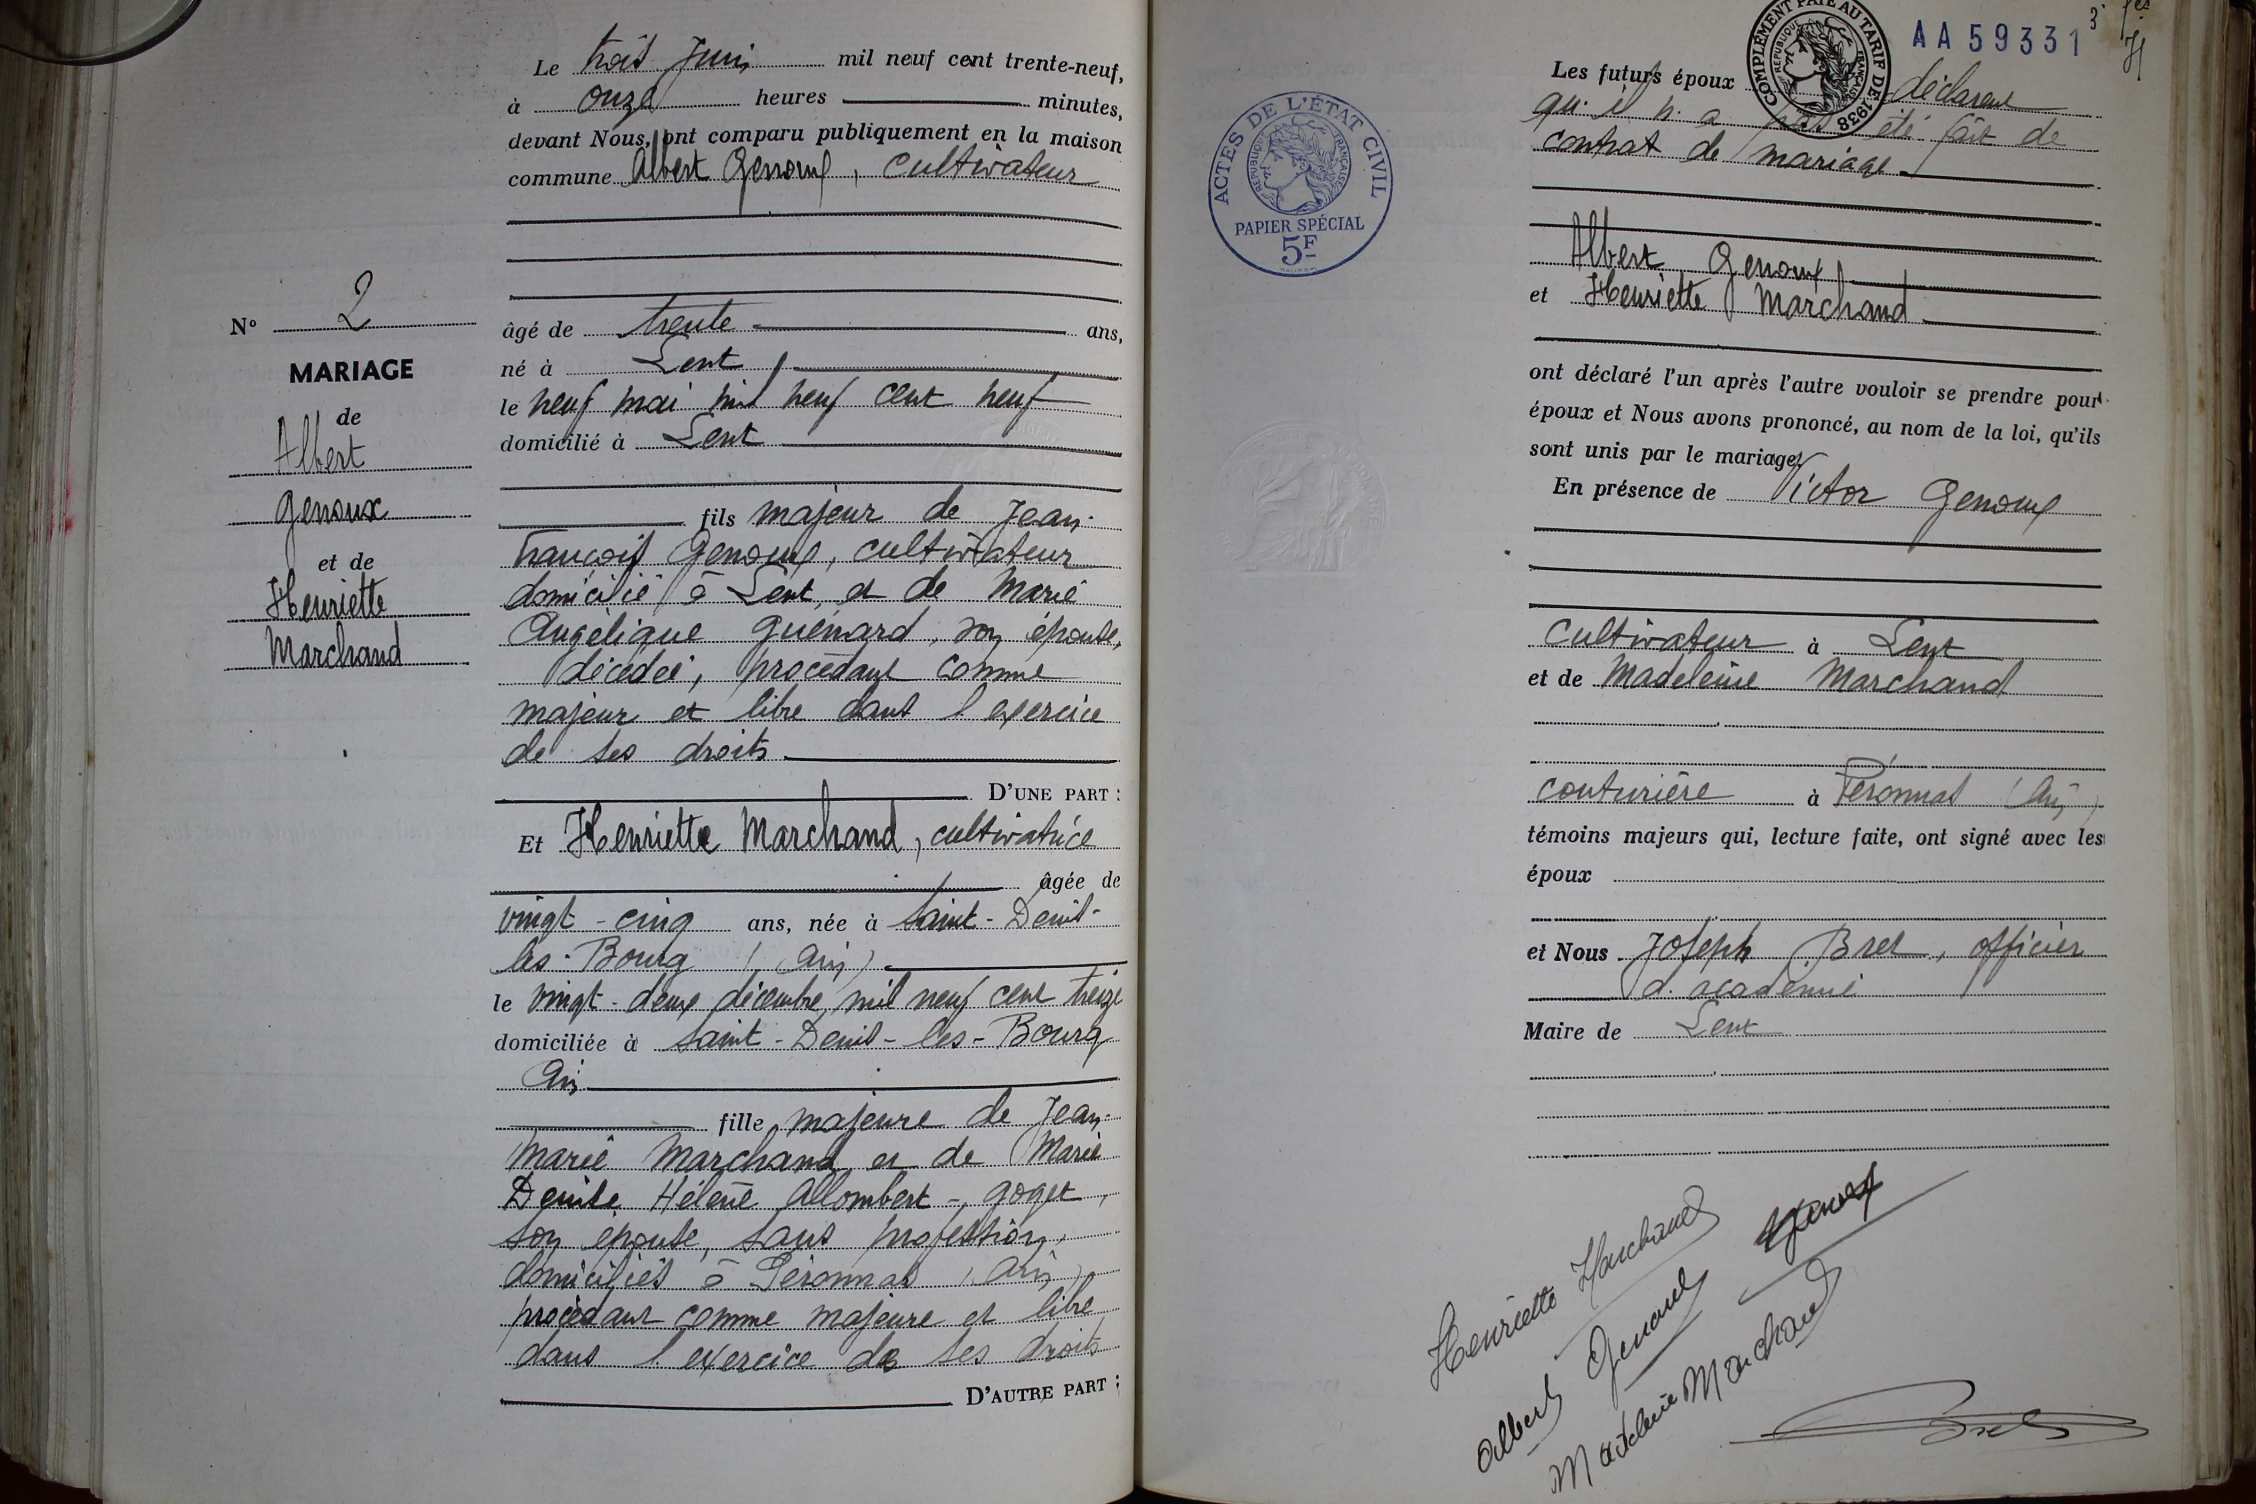 N° 2
MARIAGE
de
Albert
Genoux
et de
Henriette
Marchand
Le trois Juin mil neuf cent trente-neuf,
à onze heures minutes,
devant Nous, ont comparu publiquement en la maison
commune Albert Genoux, cultivateur
âgé de trente ans,
né à Lent
le neuf mai mil neuf cent neuf
domicilié à Lent
fils majeur de Jean-
François Genoux, cultivateur
domicilié à Lent, et de Marie
Angélique Guénard, son épouse,
décédée, procédant comme
majeur et libre dans l'exercice
de ses droits
D'UNE PART :
Et Henriette Marchand, cultivatrice
âgée de
vingt-cinq ans, née à Saint-Denis-
les-Bourg (Ain)
le vingt-deux décembre mil neuf cent treize
domiciliée à Saint-Denis-les-Bourg
Ain
fille majeure de Jean-
Marie Marchand et de Marie
Denise Hélène Allombert-Goget,
son épouse, sans profession,
domiciliés à Péronnas (Ain)
procédant comme majeure et libre
dans l'exercice de ses droits
D'AUTRE PART :
COMPLÉMENT PAYÉ AU TARIF DE 1938
RÉPUBLIQUE FRANÇAISE
AA 59331
ACTES DE L'ÉTAT CIVIL
RÉPUBLIQUE FRANÇAISE
PAPIER SPÉCIAL
5F
Les futurs époux déclarent
qu'il n'a pas été fait de
contrat de mariage
Albert Genoux
et Henriette Marchand
ont déclaré l'un après l'autre vouloir se prendre pour
époux et Nous avons prononcé, au nom de la loi, qu'ils
sont unis par le mariage.
En présence de Victor Genoux
cultivateur à Lent
et de Madeleine Marchand
couturière à Péronnas (Ain)
témoins majeurs qui, lecture faite, ont signé avec les
époux
et Nous Joseph Bret, officier
d'académie
Maire de Lent
Henriette Marchand
Genoux
Albert Genoux
Madeleine Marchand
Bret